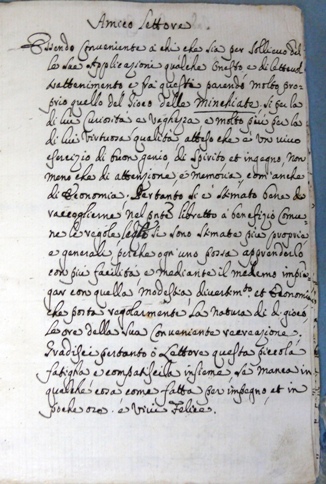 Amico Lettore.
Essendo conveniente à chi che sia per sollievo del
la sua Applicazione qualche Onesto e di lettevol
trattenimento e frà questi parendo molto pro-
prio quello del Gioco delle Minchiate si per la
di lui Curiosità e Vaghezza e molto più per la
di lui Virtuosa qualità atteso che è un vivo
esercizio di buon genio, di Spirito et ingegno, non
meno che di attenzione e memoria, com'anche
di Economia. Pertanto si è Stimato bene di
raccoglierne nel pñte libretto a benefizio Comu-
ne le regole, si sono Stimate più proprie
e generali, perche ogn'uno possa apprenderlo
con più facilità e mediante il medemo impie-
gar con quella modestia divertimto. et Economia
che porta regolarmente la natura di d. gioco
le ore della Sua Conveniente recreazione.
Gradisci pertanto ò Lettore questa piccola
fatigha e compatiscila insieme Sà manca in
qualche cosa come fatta per impegno et in
poche ore. e Vivi Felice.